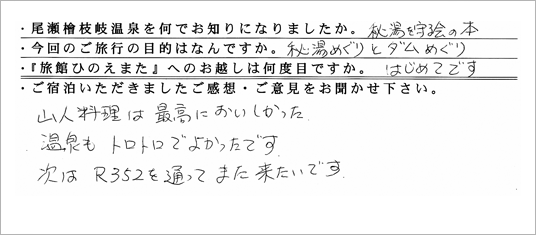 ・尾瀬檜枝岐温泉を何でお知りになりましたか。 秘湯を守る会の本
・今回のご旅行の目的はなんですか。 秘湯めぐりとダムめぐり
・『旅館ひのえまた』へのお越しは何度目ですか。 はじめてです
・ご宿泊いただきましたご感想・ご意見をお聞かせ下さい。
山人料理は最高においしかった
温泉もトロトロでよかったです
次はR352を通ってまた来たいです